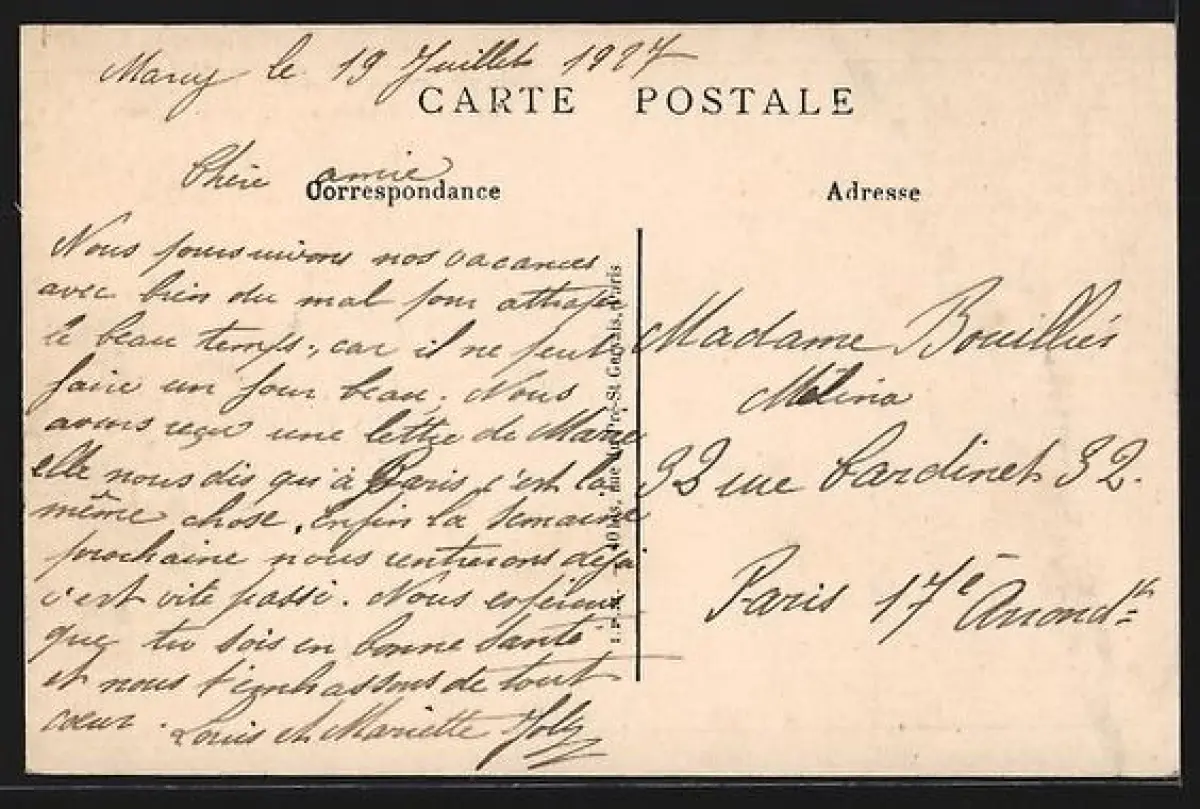 Marcy le 19 Juillet 1927
CARTE POSTALE
Chère amie
Correspondance
Nous poursuivons nos vacances
avec bien du mal pour attraper
le beau temps, car il ne peut
faire un jour beau. Nous
avons reçu une lettre de Marie
elle nous dis qu'à Paris c'est la
même chose. enfin la semaine
prochaine nous rentrerons déja
c'est vite passé. Nous espérons
que tu sois en bonne santé
et nous t'embrassons de tout
coeur. Louis et Mariette Joly
40 bis, rue du Pré-St Gervais, Paris
Adresse
Madame Bouilliés
Mélina
32 rue Cardinet 32.
Paris 17e Arrondt